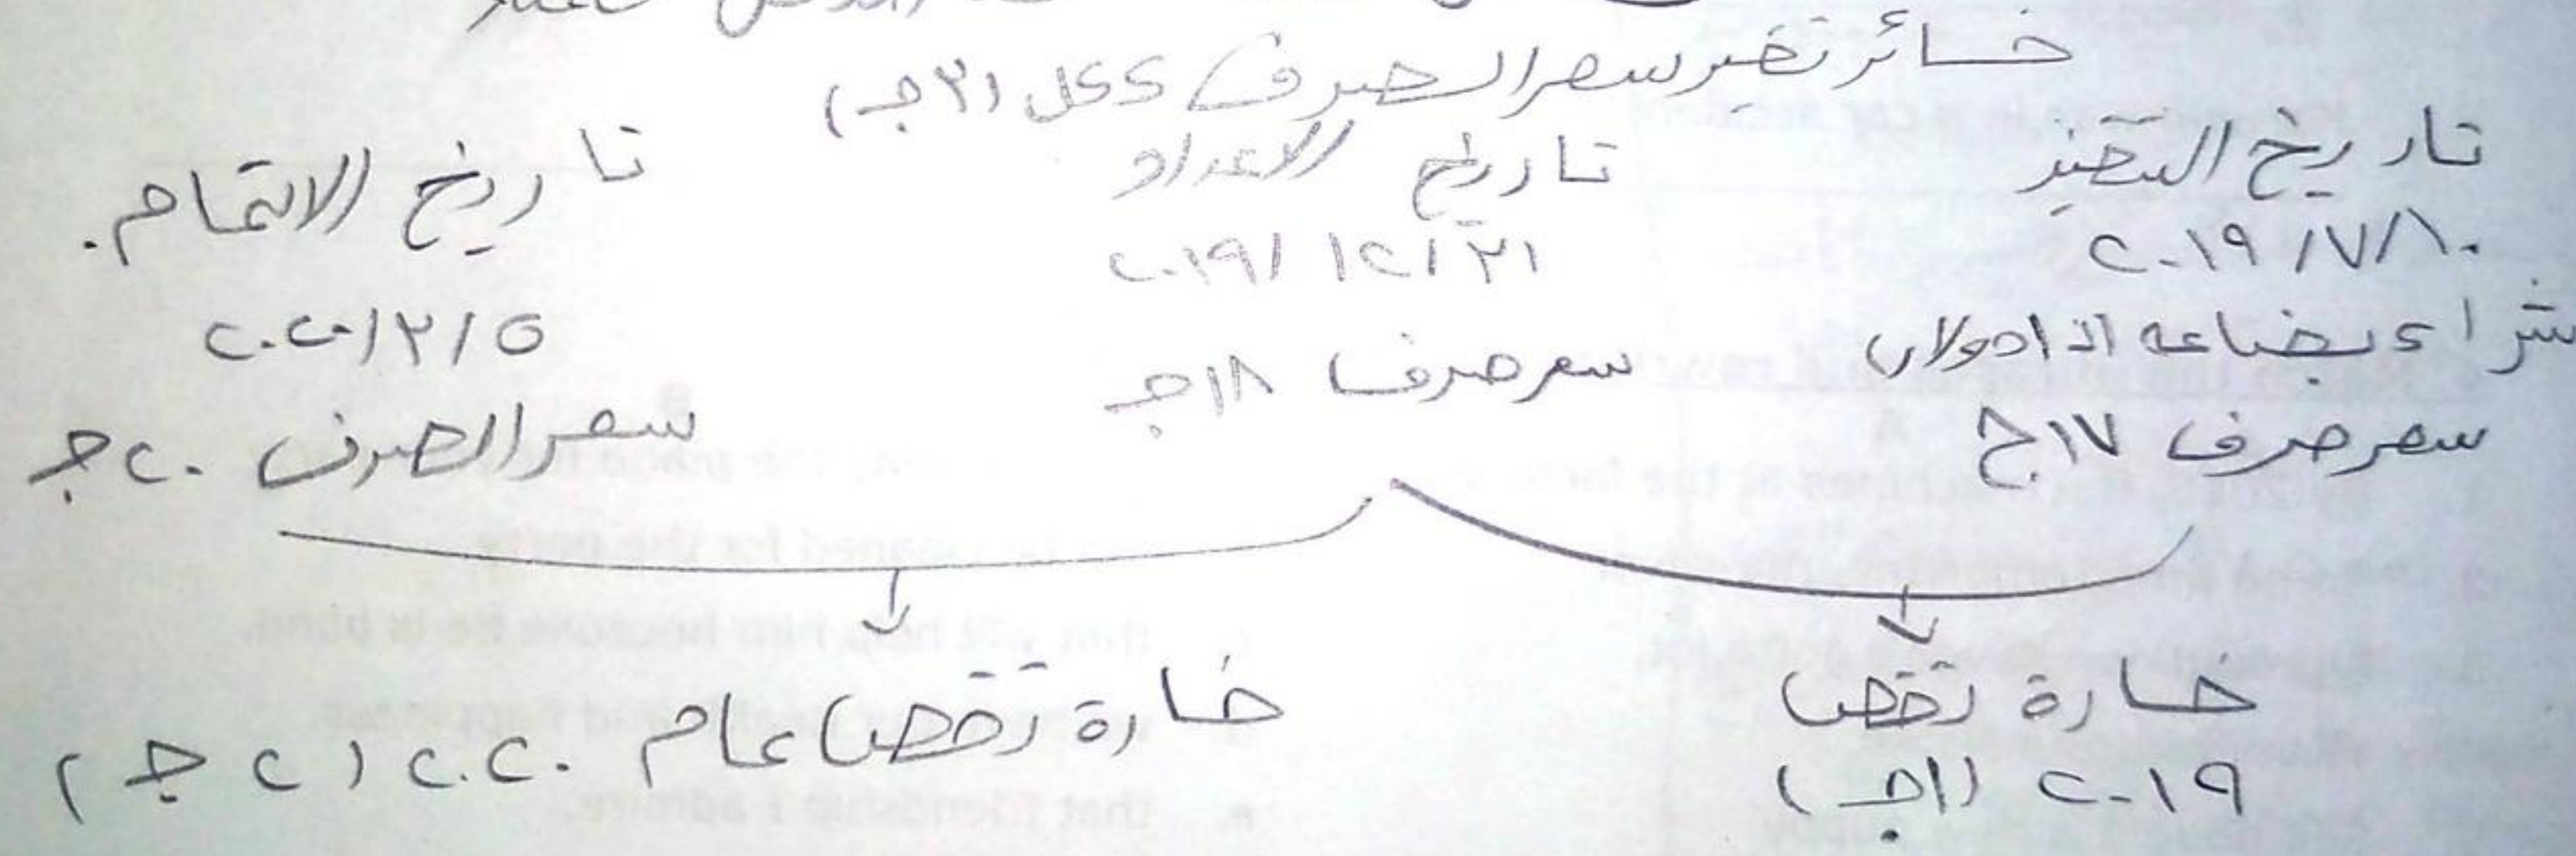 خسائر تغير سعر الصرف ككل (٣ جـ)
تاريخ التنفيذ
٢٠١٩/٧/١٠
شراء بضاعه
سعر صرف ١٧ ج
تاريخ الاعداد
٢٠١٩/١٢/٣١
سعر صرف ١٨ جـ
تاريخ الاتمام.
٢٠٢٠/٣/٥
سعر الصرف ٢٠ جـ
خسارة تخص
٢٠١٩ (١ جـ)
خسارة تخص عام ٢٠٢٠ (٢ جـ)